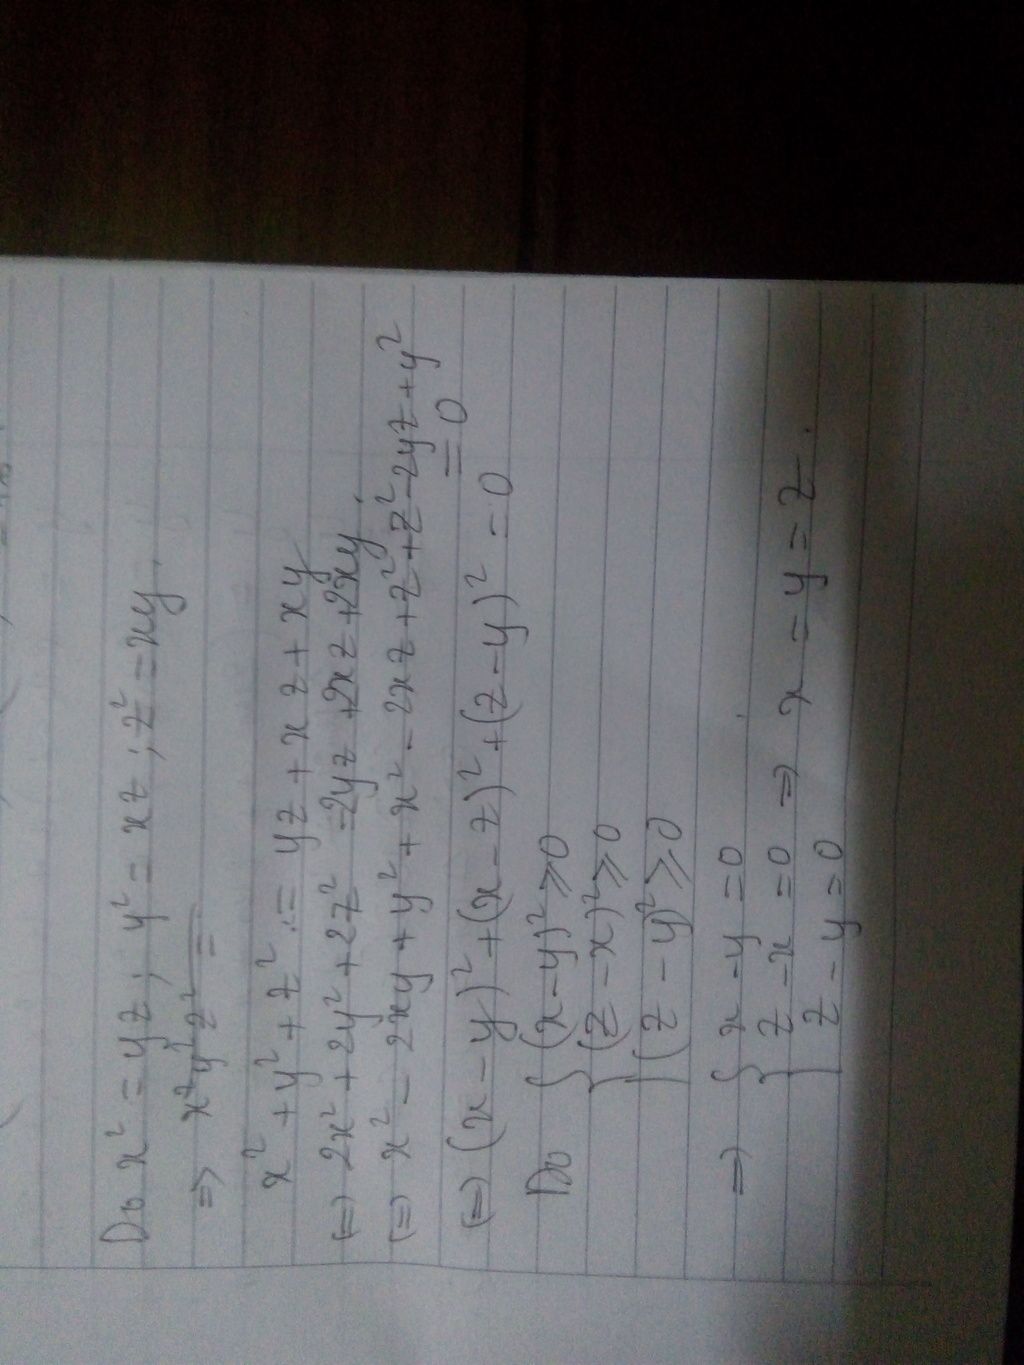 Do x² = yz ; y² = xz ; z² = xy.
=> x²y²z² =
x² + y² + z² = yz + xz + xy
(=) 2x² + 2y² + 2z² = 2yz + 2xz + 2xy.
(=) x² - 2xy + y² + x² - 2xz + z² + z² - 2yz + y²
= 0
(=) (x - y)² + (x - z)² + (z - y)² = 0
Do { (x - y)² ⩾ 0
(z - x)² ⩾ 0
(z - y)² ⩾ 0
=> { x - y = 0
z - x = 0 => x = y = z.
z - y = 0